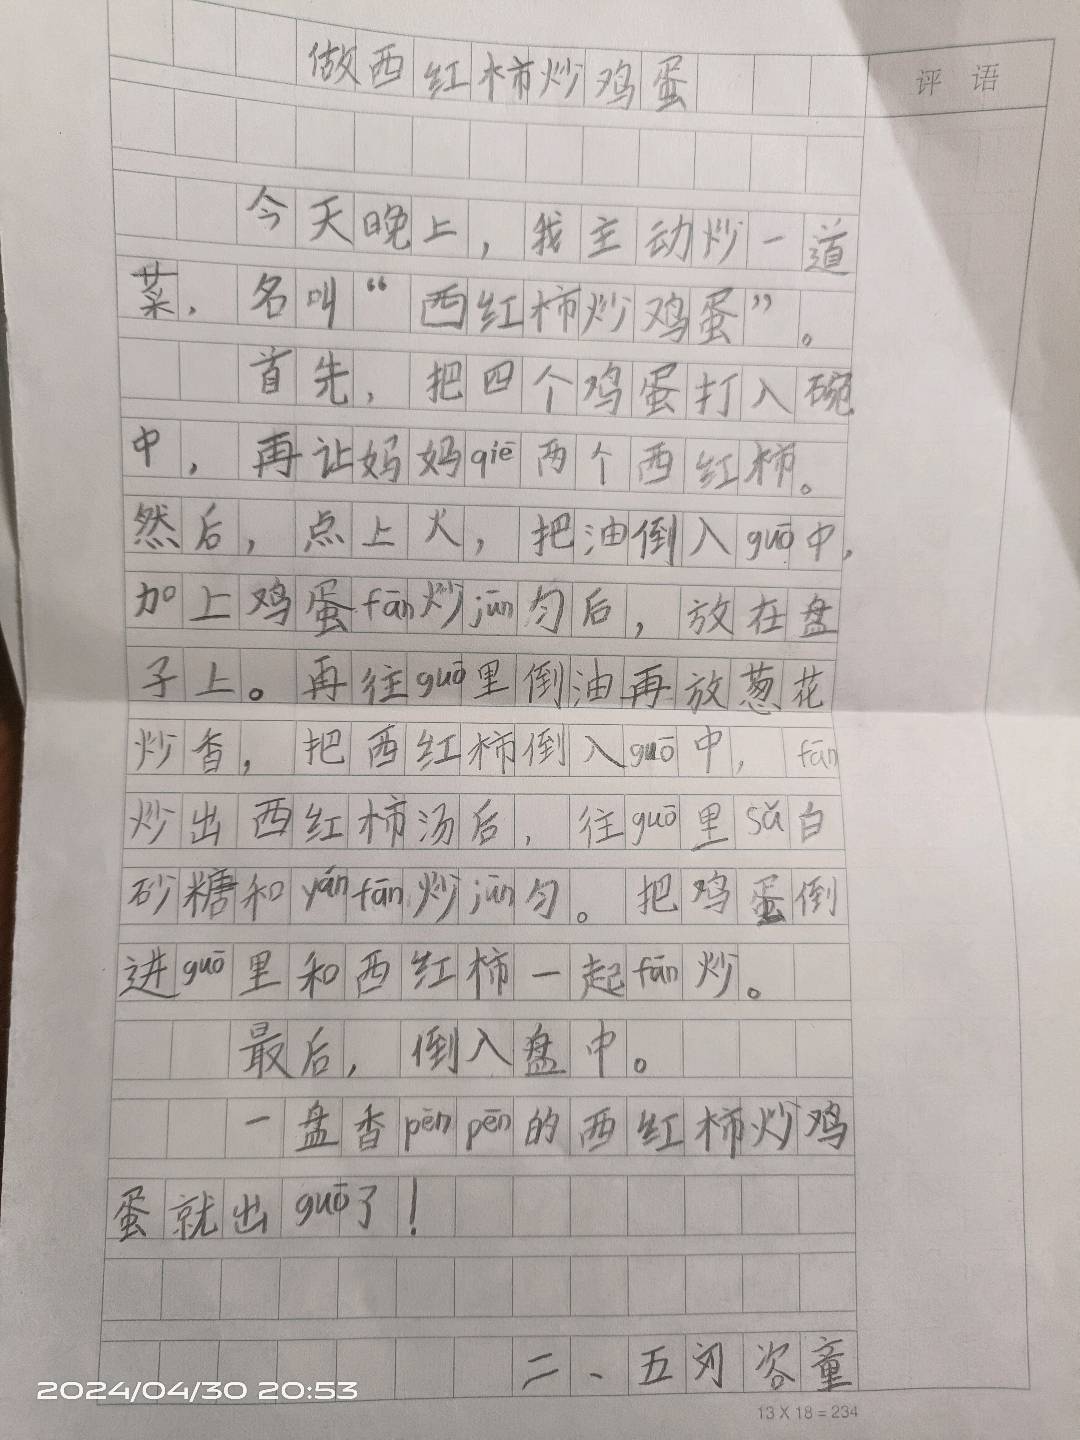 做西红柿炒鸡蛋
评 语
今天晚上，我主动炒一道
菜，名叫“西红柿炒鸡蛋”。
首先，把四个鸡蛋打入碗
中，再让妈妈qiē两个西红柿。
然后，点上火，把油倒入guō中，
加上鸡蛋fān炒jūn匀后，放在盘
子上。再往guō里倒油再放葱花
炒香，把西红柿倒入guō中，fān
炒出西红柿汤后，往guō里sǎ白
砂糖和yánfān炒jūn匀。把鸡蛋倒
进guō里和西红柿一起fān炒。
最后，倒入盘中。
一盘香pēnpēn的西红柿炒鸡
蛋就出guō了！
二、五刘容童
2024/04/30 20:53
13 X 18 = 234